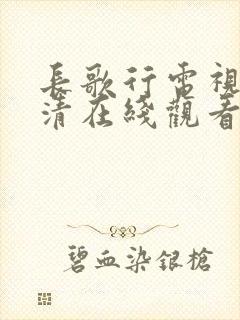 長歌行電視
清在綫觀看
碧血染銀槍